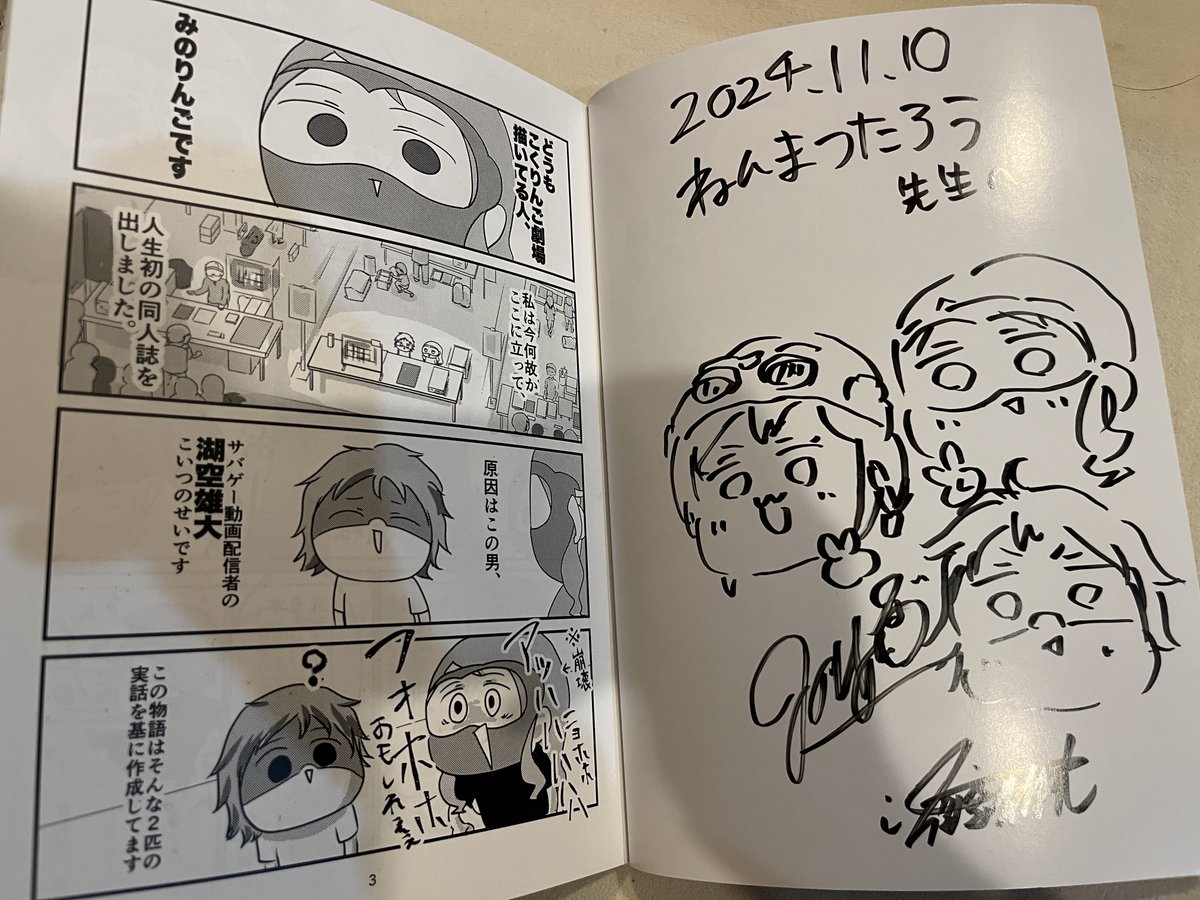 どうも
こくりんご劇場
描いてる人、
みのりんごです
私は今何故か
ここに立って、
人生初の同人誌を
出しました。
原因はこの男、
サバゲー動画配信者の
湖空雄大
こいつのせいです
※崩壊
アッハハハハハハ
ニョホホ
フォホホ
おもしれぇぇ
?
この物語はそんな2匹の
実話を基に作成してます
3
2024.11.10
ねんまつたろう
先生へ